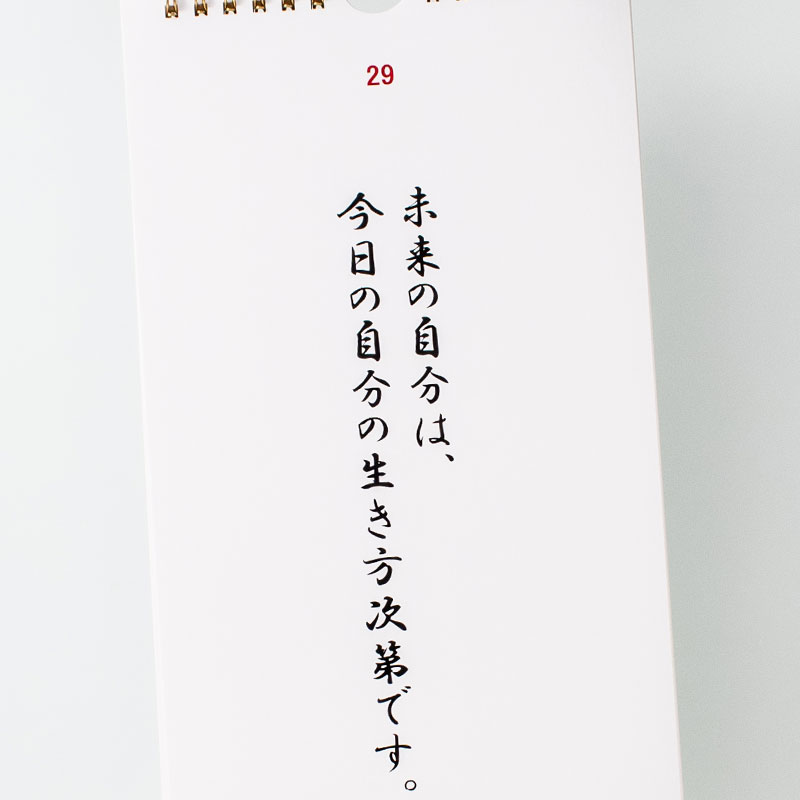 29
未来の自分は、
今日の自分の生き方次第です。